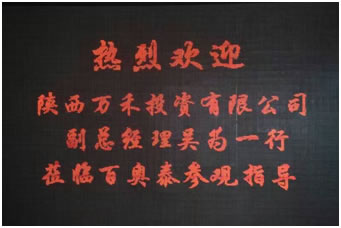 热烈欢迎
陕西万禾投资有限公司
副总经理吴为一行
莅临百奥泰参观指导